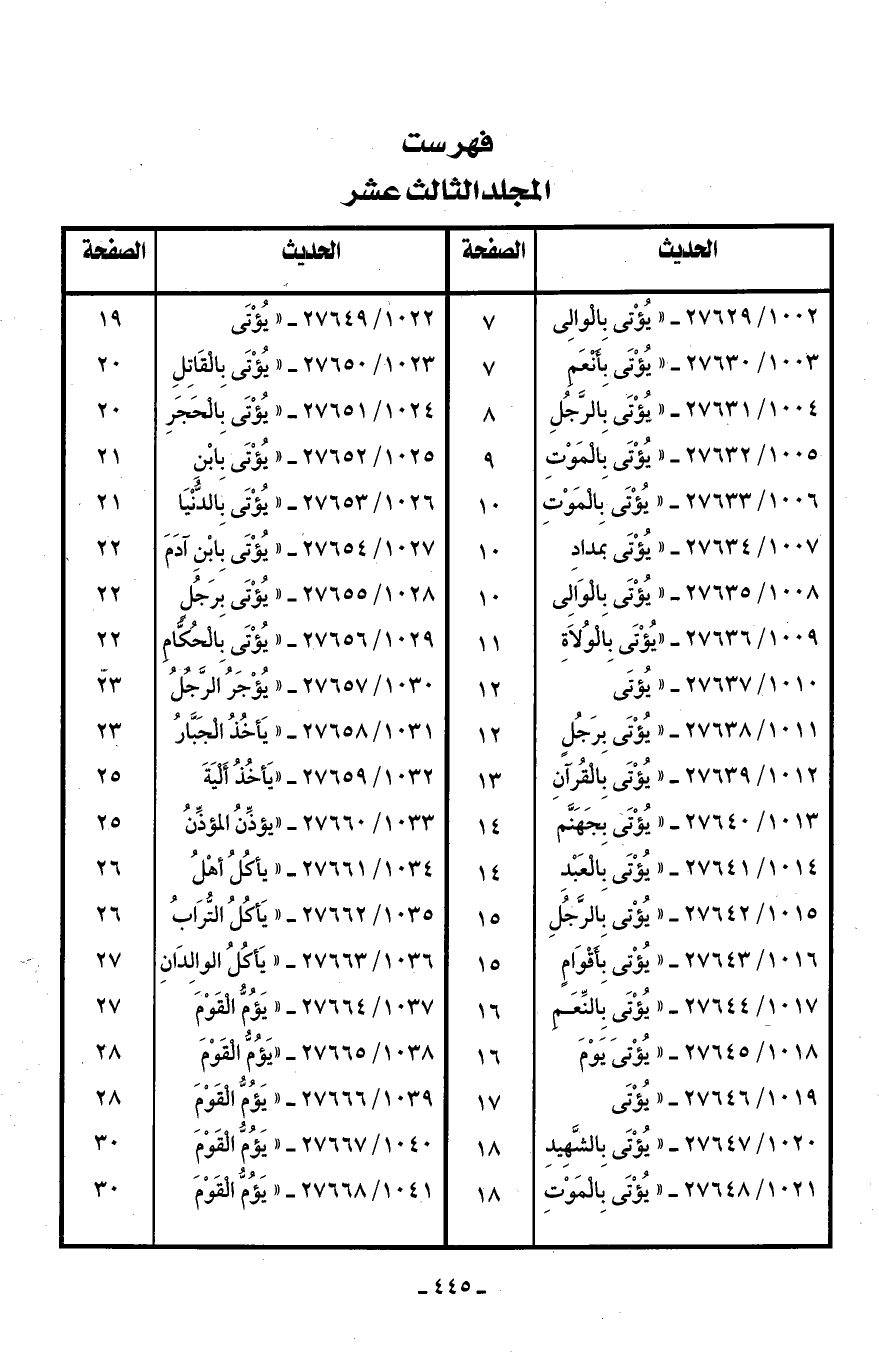 فهرست
المجلد الثالث عشر
الحديث الصفحة الحديث الصفحة
١٠٠٢/٢٧٦٢٩ ـ « يُؤْتى بِالْوالِى ٧ ١٠٢٢/٢٧٦٤٩ ـ « يُؤْتَى ١٩
١٠٠٣/٢٧٦٣٠ ـ « يُؤْتَى بِأَنْعَمِ ٧ ١٠٢٣/٢٧٦٥٠ ـ « يُؤْتَى بِالْقَاتِلِ ٢٠
١٠٠٤/٢٧٦٣١ ـ « يُؤْتَى بِالرَّجُلِ ٨ ١٠٢٤/٢٧٦٥١ ـ « يُؤْتَى بِالْحَجَرِ ٢٠
١٠٠٥/٢٧٦٣٢ ـ « يُؤْتَى بِالْمَوْتِ ٩ ١٠٢٥/٢٧٦٥٢ ـ « يُؤْتَى بِابْنِ ٢١
١٠٠٦/٢٧٦٣٣ ـ « يُؤْتَى بِالْمَوْتِ ١٠ ١٠٢٦/٢٧٦٥٣ ـ « يُؤْتَى بِالدُّنْيَا ٢١
١٠٠٧/٢٧٦٣٤ ـ « يُؤْتَى بمدادِ ١٠ ١٠٢٧/٢٧٦٥٤ ـ « يُؤْتَى بِابْنِ آدَمَ ٢٢
١٠٠٨/٢٧٦٣٥ ـ « يُؤْتَى بِالْوَالِى ١٠ ١٠٢٨/٢٧٦٥٥ ـ « يُؤْتَى بِرَجُلٍ ٢٢
١٠٠٩/٢٧٦٣٦ ـ «يُؤْتَى بِالْوُلاَةِ ١١ ١٠٢٩/٢٧٦٥٦ ـ « يُؤْتَى بِالْحُكَّامِ ٢٢
١٠١٠/٢٧٦٣٧ ـ « يُؤتَى ١٢ ١٠٣٠/٢٧٦٥٧ ـ « يُؤْجَرُ الرَّجُلُ ٢٣
١٠١١/٢٧٦٣٨ ـ « يُؤْتَى بِرَجُلٍ ١٢ ١٠٣١/٢٧٦٥٨ ـ « يَأخُذُ الْجَبَّارُ ٢٣
١٠١٢/٢٧٦٣٩ ـ « يُؤْتَى بِالْقُرآنِ ١٣ ١٠٣٢/٢٧٦٥٩ ـ «يَأخُذُ أَلْيَةَ ٢٥
١٠١٣/٢٧٦٤٠ ـ « يُؤْتَى بِجَهَنَّم ١٤ ١٠٣٣/٢٧٦٦٠ ـ «يؤذِّنُ المؤذِّنُ ٢٥
١٠١٤/٢٧٦٤١ ـ « يُؤْتَى بِالْعَبْدِ ١٤ ١٠٣٤/٢٧٦٦١ ـ « يأكلُ أهْلُ ٢٦
١٠١٥/٢٧٦٤٢ ـ « يُؤْتى بِالرَّجُلِ ١٥ ١٠٣٥/٢٧٦٦٢ ـ « يَأكُلُ التُّرَابُ ٢٦
١٠١٦/٢٧٦٤٣ ـ « يُؤْتى بِأَقْوَامٍ ١٥ ١٠٣٦/٢٧٦٦٣ ـ « يَأكُلُ الوالِدَانِ ٢٧
١٠١٧/٢٧٦٤٤ ـ « يُؤْتَى بِالنِّعَـمِ ١٦ ١٠٣٧/٢٧٦٦٤ ـ « يَؤُمُّ الْقَوْمَ ٢٧
١٠١٨/٢٧٦٤٥ ـ « يُؤْتىَ يَوْمَ ١٦ ١٠٣٨/٢٧٦٦٥ ـ «يَؤُمُّ الْقَوْمَ ٢٨
١٠١٩/٢٧٦٤٦ ـ « يُؤْتَى ١٧ ١٠٣٩/٢٧٦٦٦ ـ « يَؤُمُّ الْقَوْمَ ٢٨
١٠٢٠/٢٧٦٤٧ ـ « يُؤْتَى بِالشَّهِيدِ ١٨ ١٠٤٠/٢٧٦٦٧ ـ « يَؤُمُّ الْقَوْمَ ٣٠
١٠٢١/٢٧٦٤٨ ـ « يُؤْتَى بِالْمَوْتِ ١٨ ١٠٤١/٢٧٦٦٨ ـ « يَؤُمُّ الْقَوْمَ ٣٠
ـ ٤٤٥ ـ